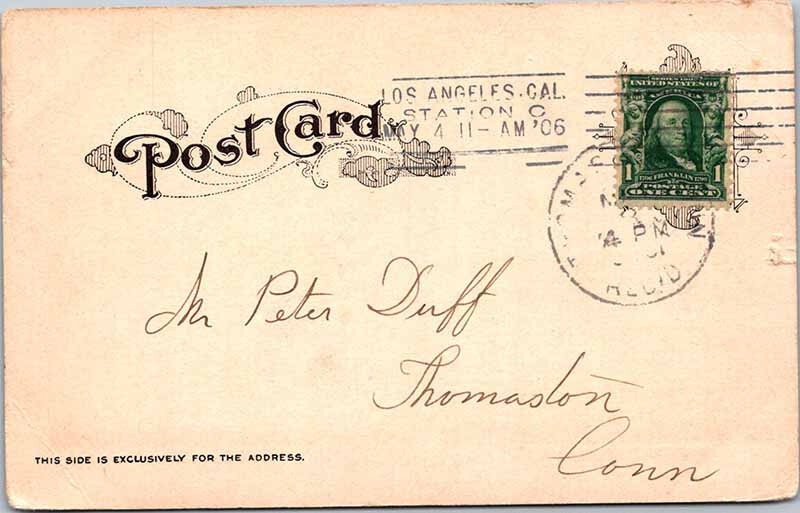 Post Card
LOS ANGELES. CAL.
STATION C
MAY 4 11-AM '06
SERIES 1902
UNITED STATES OF
1 1706 FRANKLIN 1790 1
POSTAGE
ONE CENT
4 PM
REC'D
Mr Peter Duff
Thomaston
Conn
THIS SIDE IS EXCLUSIVELY FOR THE ADDRESS.